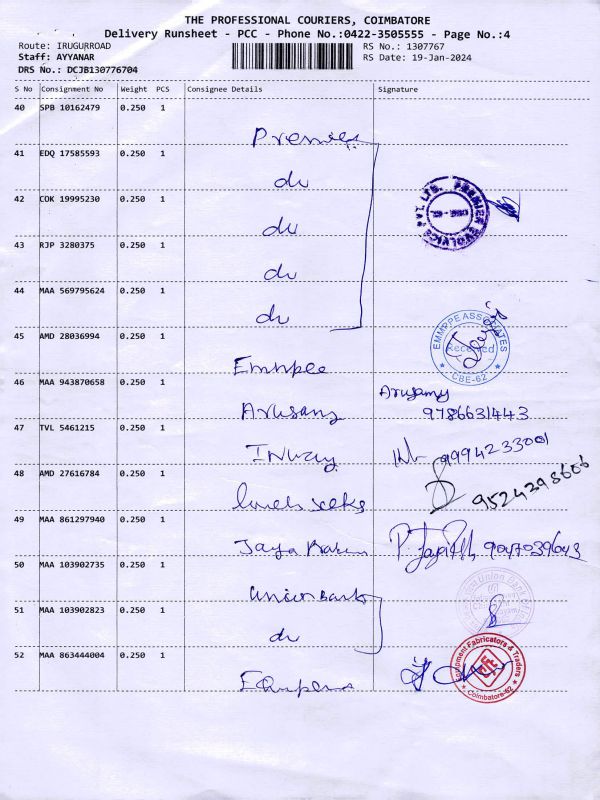 THE PROFESSIONAL COURIERS, COIMBATORE
Delivery Runsheet - PCC - Phone No.:0422-3505555 - Page No.:4
Route: IRUGURROAD RS No.: 1307767
Staff: AYYANAR RS Date: 19-Jan-2024
DRS No.: DCJB130776704
S No Consignment No Weight PCS Consignee Details Signature
40 SPB 10162479 0.250 1
Premier
41 EDQ 17585593 0.250 1
du
42 COK 19995230 0.250 1
du
43 RJP 3280375 0.250 1
du
44 MAA 569795624 0.250 1
du
EMMPPE ASSOCIATES
Received
CBE-62
45 AMD 28036994 0.250 1
Emmpee
46 MAA 943870658 0.250 1 Arusamy
Arusamy 9786631443
47 TVL 5461215 0.250 1
9994233001
48 AMD 27616784 0.250 1
9524298606
49 MAA 861297940 0.250 1
Jaya 9047039643
50 MAA 103902735 0.250 1
Union Bank Union Bank of
51 MAA 103902823 0.250 1
du
52 MAA 863444004 0.250 1
Equipment Fabricators & Traders
Coimbatore-62